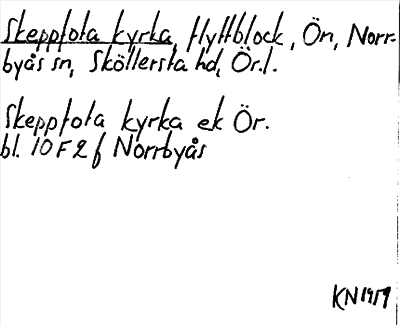 Skepptota kyrka, flyttblock, Ön, Norr=
byås sn, Sköllersta hd, Ör.l.
Skepptota kyrka ek Ör.
bl. 10 F 2 f Norrbyås
KN 1959